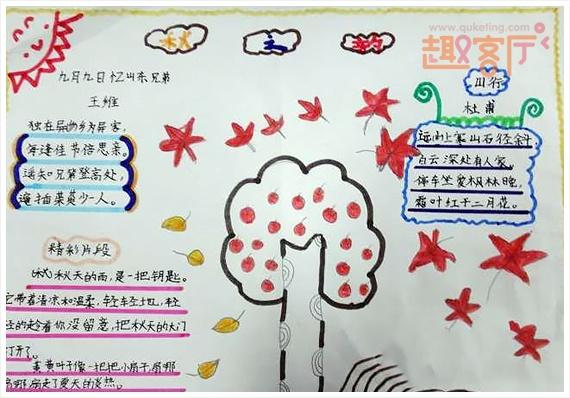 www.quketing.com
趣客厅
秋 之 韵
九月九日忆山东兄弟
王维
独在异乡为异客,
每逢佳节倍思亲。
遥知兄弟登高处,
遍插茱萸少一人。
山行
杜甫
远上寒山石径斜,
白云深处有人家。
停车坐爱枫林晚,
霜叶红于二月花。
精彩片段
秋天的雨,是一把钥匙。
它带着清凉和温柔,轻轻地,轻
轻的趁着你没留意,把秋天的大门
打开了。
黄黄叶子像一把把小扇子,扇哪
扇哪,扇走了夏天的炎热。